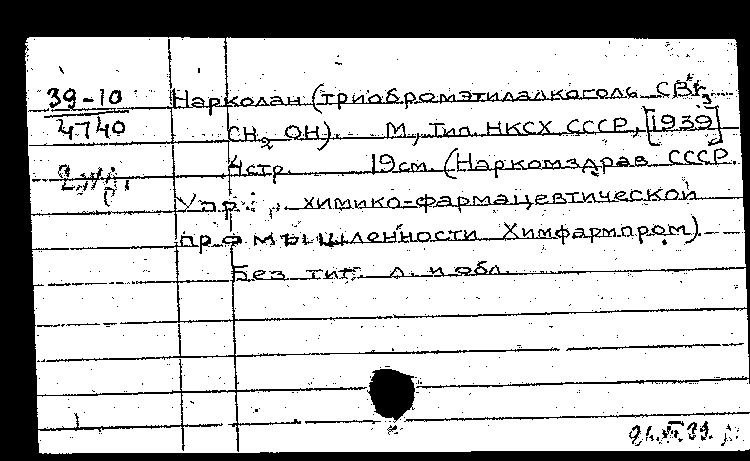 39-10
4740
2 экз.
Нарколан (триобромэтилалкоголь CBr3
CH2 OH). М., Тип. НКСХ СССР, [1939]
4стр. 19см. (Наркомздрав СССР.
Упр. химико-фармацевтической
промышленности Химфармпром)
Без тит. л. и обл.